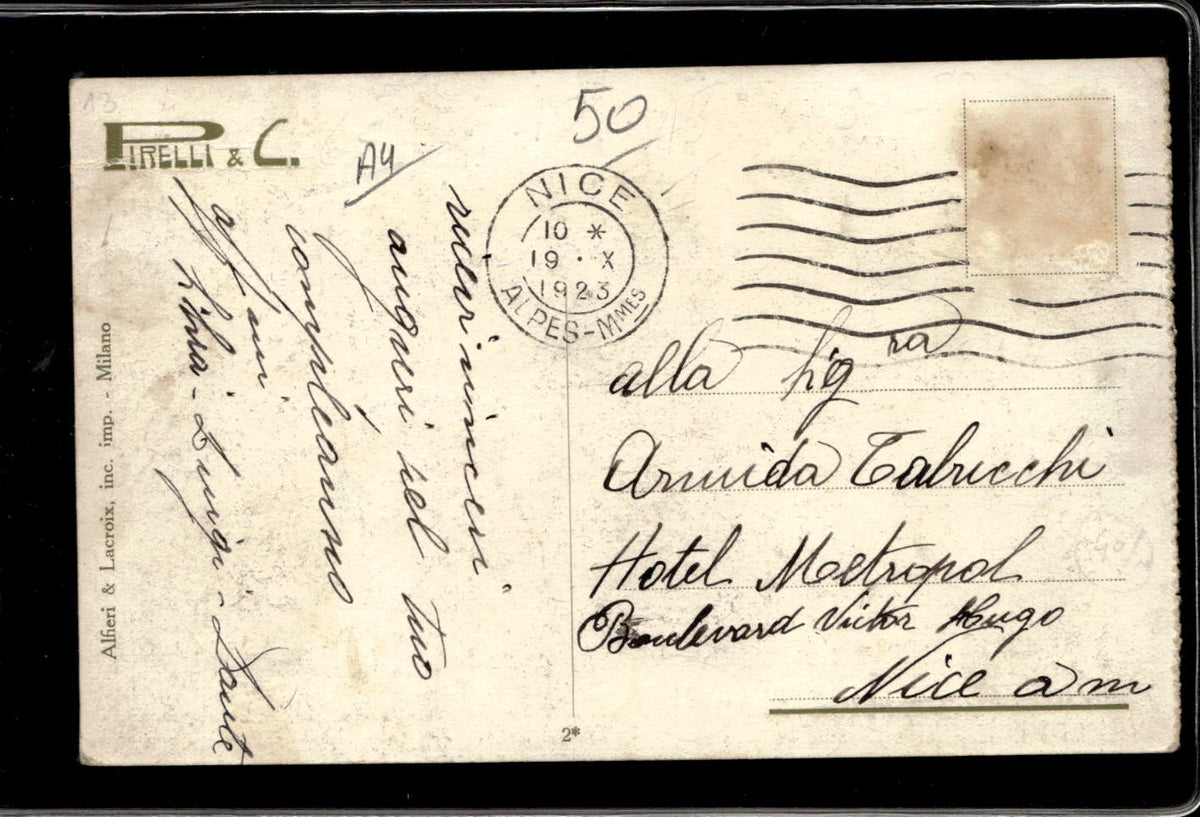 13
PIRELLI & C.
A4
50
NICE
10 *
19 · X
1923
ALPES-MMES
vivissimi
auguri pel tuo
compleanno
aff mi
Luigi - Dante
alla Sig ra
Armida Tabucchi
Hotel Metropol
Boulevard Victor Hugo
Nice a m
Alfieri & Lacroix, inc. imp. - Milano
2*